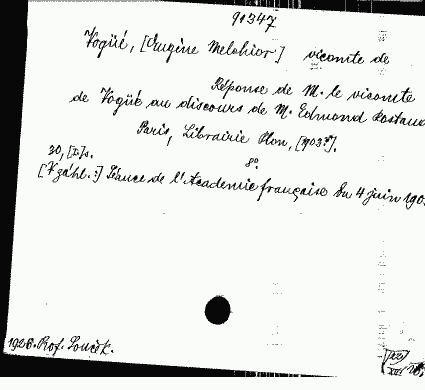 91347
Vogüé, [Eugène Melchior] vicomte de
Réponse de M. le vicomte
de Vogüé au discours de M. Edmond Rostand
Paris, Librairie Plon, [1903?].
30, [II]s. 8°.
[V záhl.:] Séance de l'Academie française du 4 juin 1903
1926. Prof. Souček.